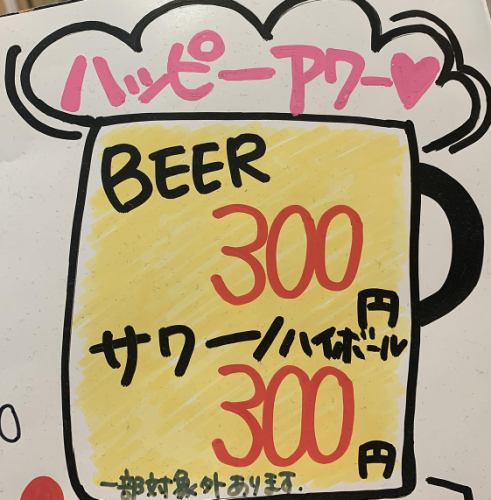 ハッピーアワー♥
BEER
300
円
サワー/ハイボール
300
円
一部対象外あります.